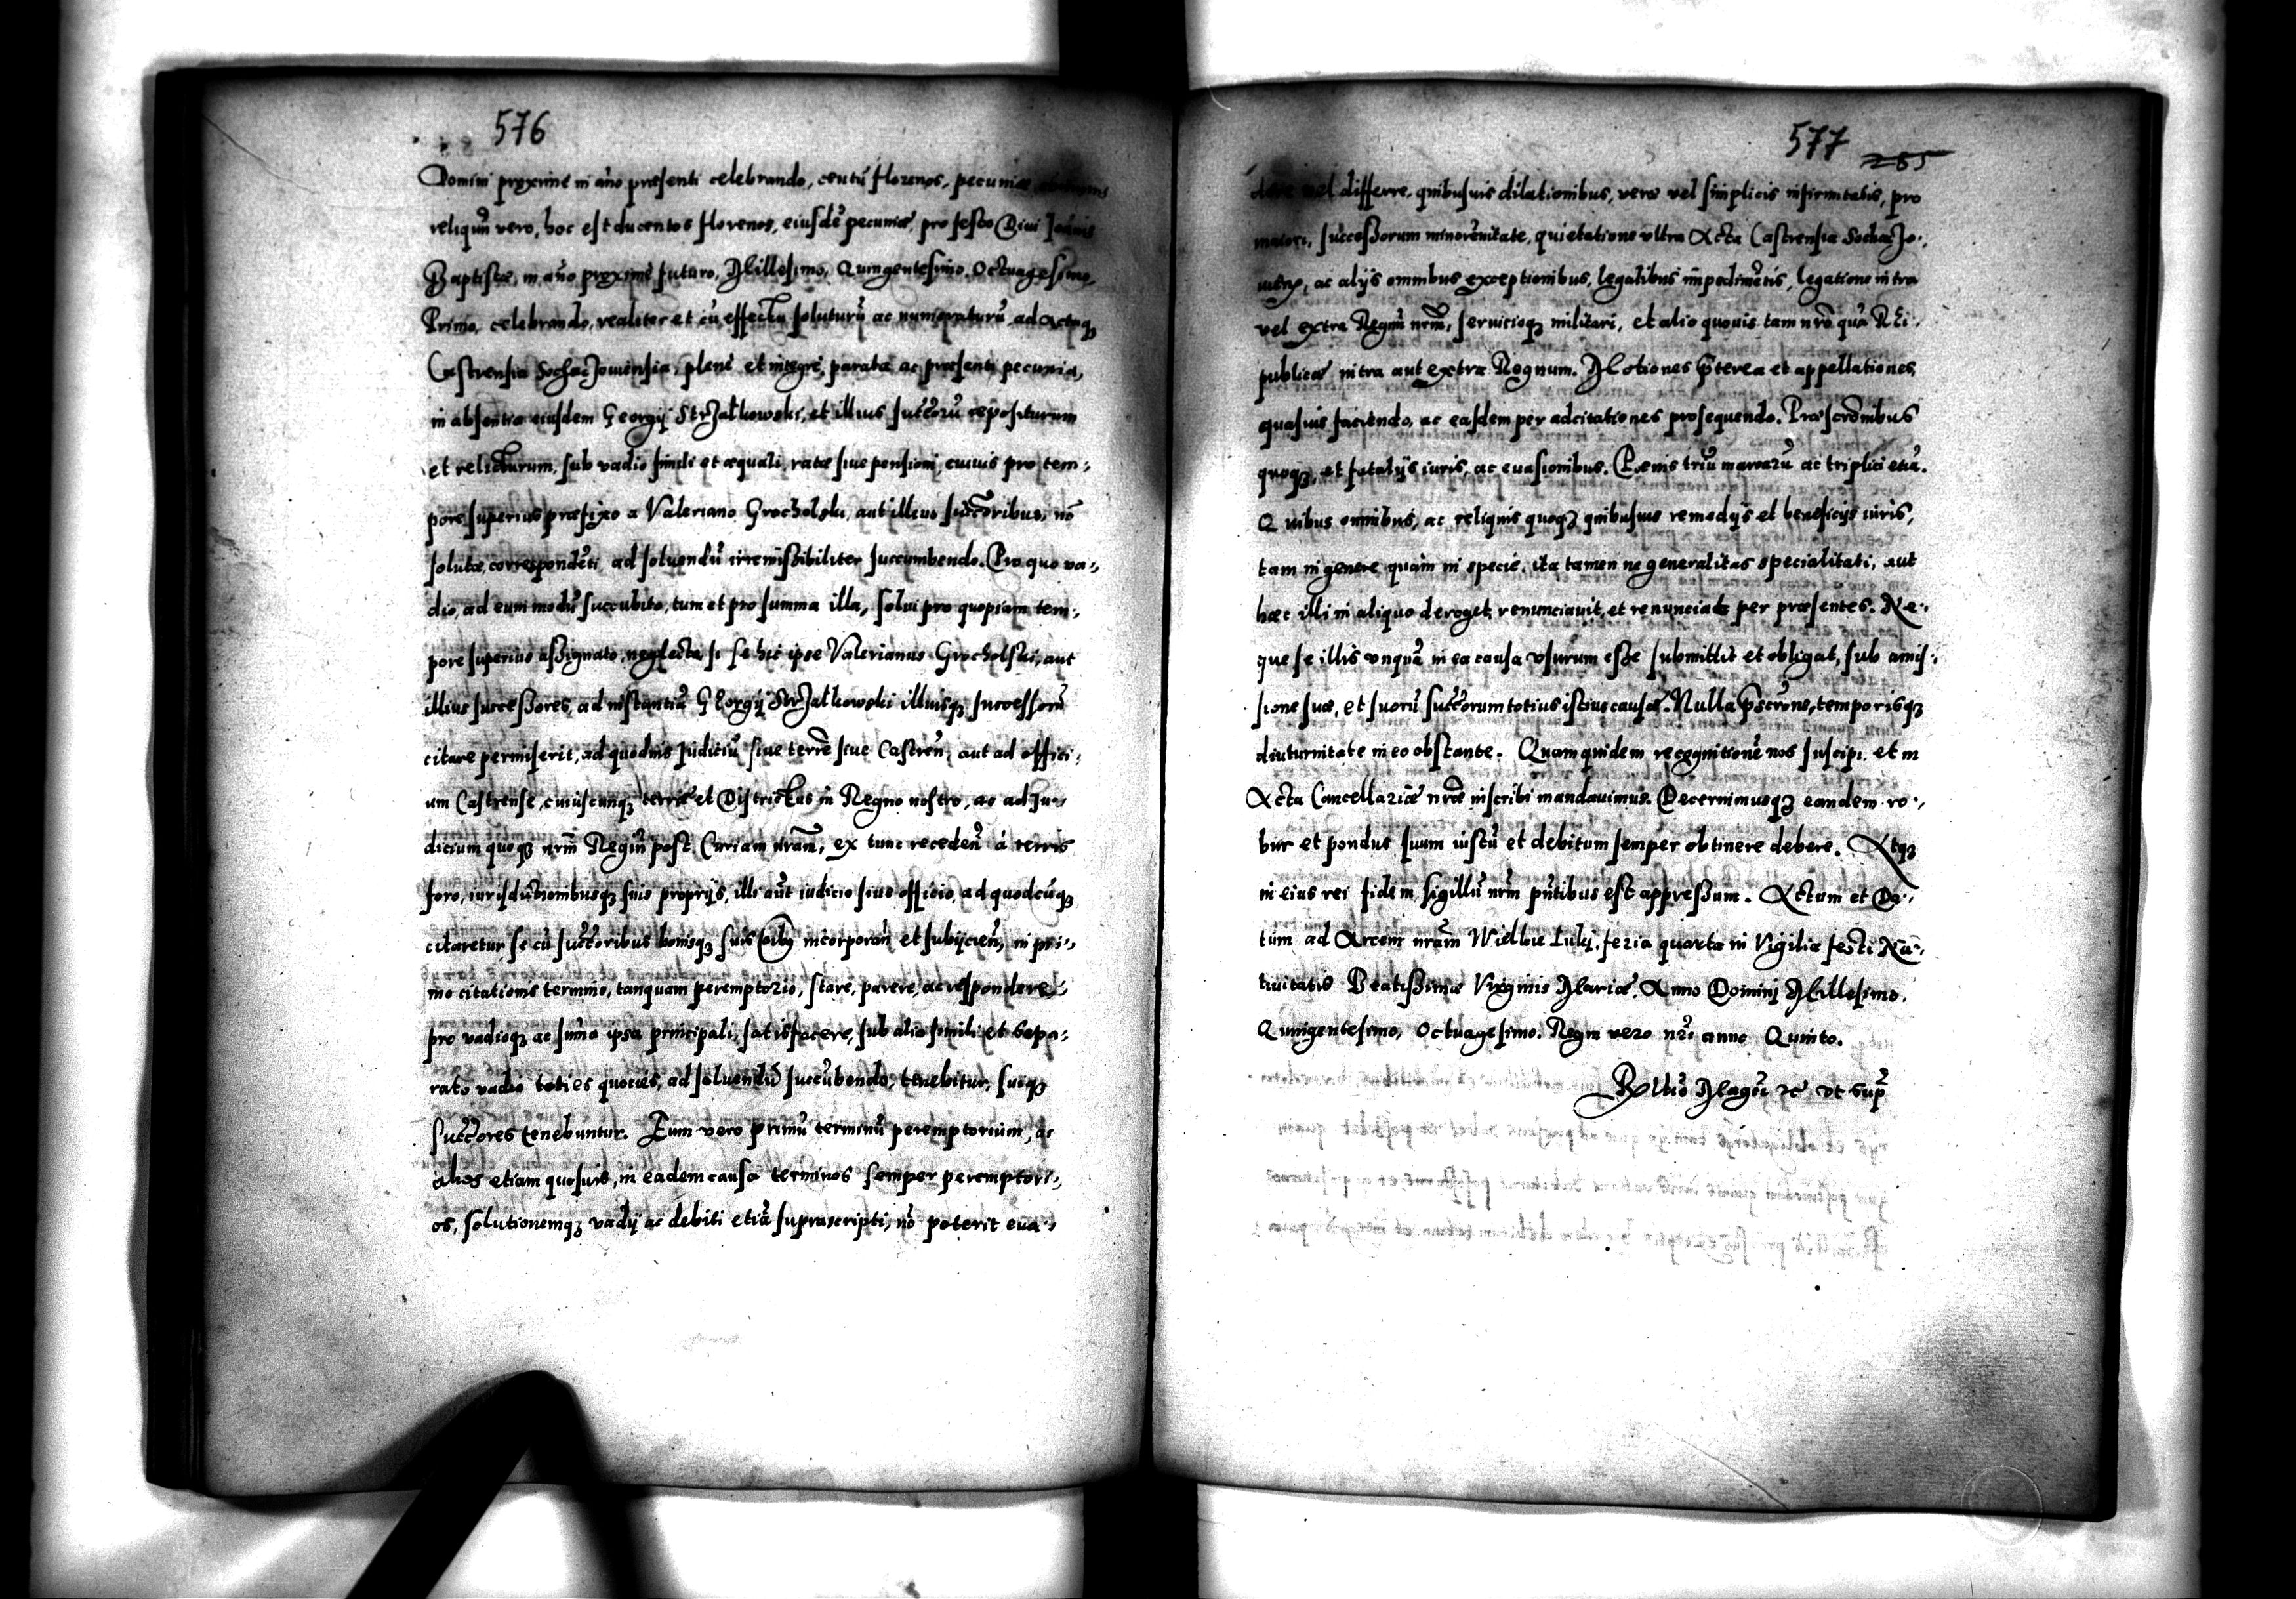 576
Domini proxime in año præsenti celebrando, centũ florenos, pecuniæ
reliquũ vero, hoc est ducentos florenos, eiusdẽ pecuniæ, pro festo Diui Joãnis
Baptistæ, in año proximè futuro, Millesimo, Quingentesimo. Octuagesimo,
Primo, celebrando, realiter et cũ effectu soluturũ ac numeraturũ ad Actaq₃
Castrensia Sochaczouiensia, plenè et integrè, parata ac præsenti pecunia,
in absentia eiusdem Georgij Strzałkowski, et illius succõrũ repositurum
et relicturum, sub vadio simili et æquali, ratæ siue pensioni, cuiuis pro tem:,
pore superius præfixo a Valeriano Grocholski, aut illius succõribus, nõ
solutæ, correspondẽti, ad soluendũ irremissibiliter succumbendo. Pro quo va:,
dio, ad eum modũ succubito, tum et pro summa illa, solui pro quopiam tem:,
pore superius assignato, neglecta, si se hic ipse Valerianus Grocholski, aut
illius successores, ad instantiã Georgij Strzałkowski illiusq₃ successorũ
citare permiserit, ad quoduis Judiciũ siue terrẽ siue Castreñ, aut ad offici:,
um Castrense, cuiuscunq₃ terræ et Districtus in Regno nostro, ac ad Ju:,
dicium quoq₃ nrm̃ Regiũ post Curiam nram̃, ex tunc recedeñ à terris
foro, iurisdictionibusq₃ suis proprijs, illi aũt iudicio siue officio, ad quodcũq₃
citaretur, se cũ succõribus bonisq₃ suis oĩbus incorporañ et subijcieñ, in pri:,
mo citationis termino, tanquam peremptorio, stare, parere, ac respondere,
pro vadioq₃ ac sũma ipsa principali, satisfacere, sub alio simili et sepa:,
rato vadio toties quoties, ad soluendũ succũbendo, tenebitur, suiq₃
succõres tenebuntur. Eum vero primũ terminũ peremptorium, ac
alios etiam quosuis, in eadem causa terminos semper peremptori:,
os, solutionemq₃ vadij ac debiti etiã suprascripti, nõ poterit eua:,
577 285
dere vel differre, quibusuis dilationibus, vera vel simplicis infirmitatis, pro
maiori, successorum minorẽnitate, quietatione vltra Acta Castrensia Sochaczo:,
, ac alijs omnibus exceptionibus, legalibus impedimẽtis, legatione intra
vel extra Regnũ nrm̃, seruicioq₃ militari, et alio quouis tam nrõ quã Rei:,
publicæ intra aut extra Regnum. Motiones p̃terea et appellationes
quasuis faciendo, ac easdem per adcitationes prosequendo. Præscrõnibus
quoq₃, et fatalijs iuris, ac euasionibus. Pœnis triũ marcarũ ac triplici etiã.
Quibus omnibus, ac reliquis quoq₃ quibusuis remedijs et beneficijs iuris,
tam in genere quàm in specie, ita tamen ne generalitas specialitati, aut
hæc illi in aliquo deroget, renunciauit, et renunciat per præsentes. Ne:,
que se illis vnquã in ea causa vsurum esse submittit et obligat, sub amis:,
sione suæ, et suorũ succõrum totius istius causæ. Nulla p̃scrõne, temporisq₃
diuturnitate in eo obstante. Quam quidem recognitionẽ nos suscipi, et in
Acta Cancellariæ nræ̃ inscribi mandauimus. Decernimusq₃ eandem ro:,
bur et pondus suum iustũ et debitum semper obtinere debere. Atq₃
in eius rei fidem, sigillũ nrm̃ pñtibus est appressum. Actum et Da:,
tum ad Arcem nram̃ Wielkie Luki, feria quarta in Vigilia festi Na:,
tiuitatis Beatissimæ Virginis Mariæ. Anno Domini Millesimo.
Quingentesimo, Octuagesimo. Regni vero nrĩ anno Quinto.
ut sup̃